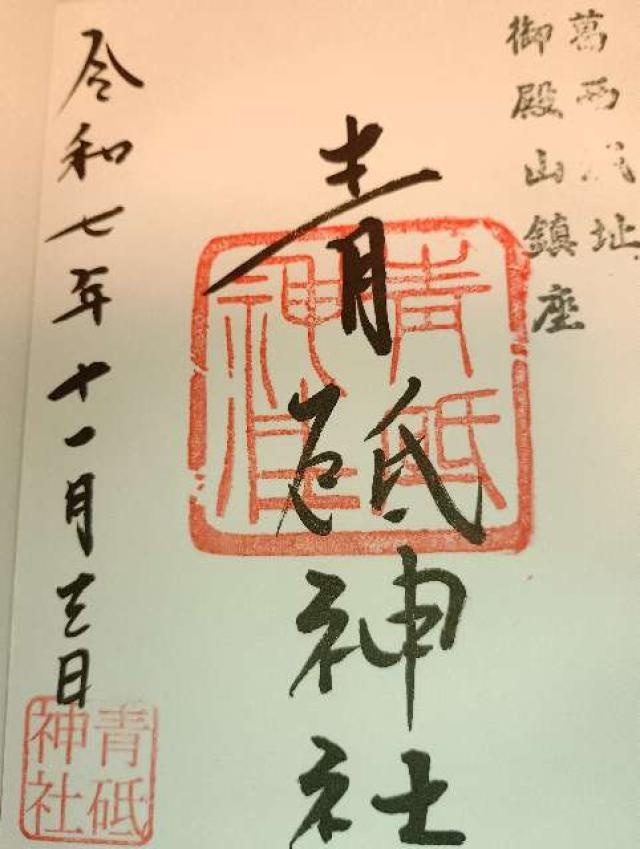 葛西城址
御殿山鎮座
青砥神社
青砥
神社
令和七年十一月三日
青砥
神社